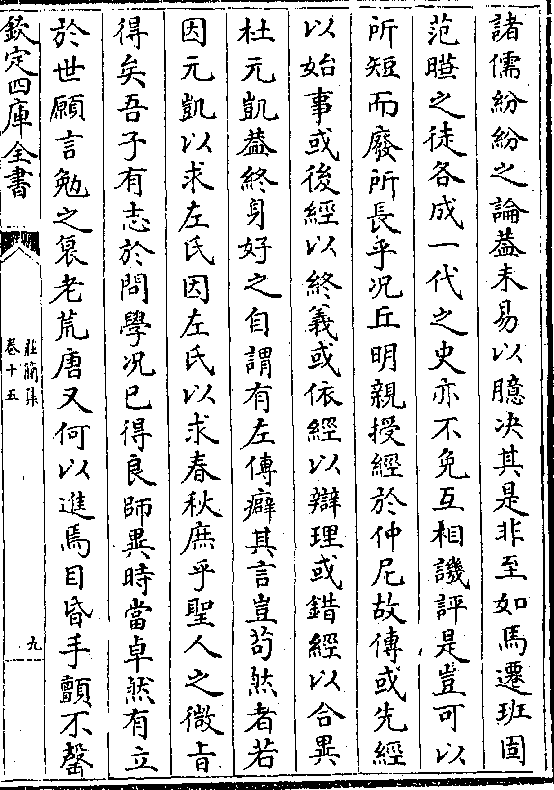 諸儒紛紛之論葢未易以臆决其是非至如馬遷班固
范曄之徒各成一代之史亦不免互相譏評是豈可以
所短而廢所長乎况丘明親授經於仲尼故傳或先經
以始事或後經以終義或依經以辯理或錯經以合異
杜元凱葢終身好之自謂有左傳癖其言豈苟然者若
因元凱以求左氏因左氏以求春秋庶乎聖人之微㫖
得矣吾子有志於問學况已得良師異時當卓然有立
於世願言勉之衰老荒唐又何以進焉目昏手顫不罄
欽定四庫全書
莊簡集
卷十五
九